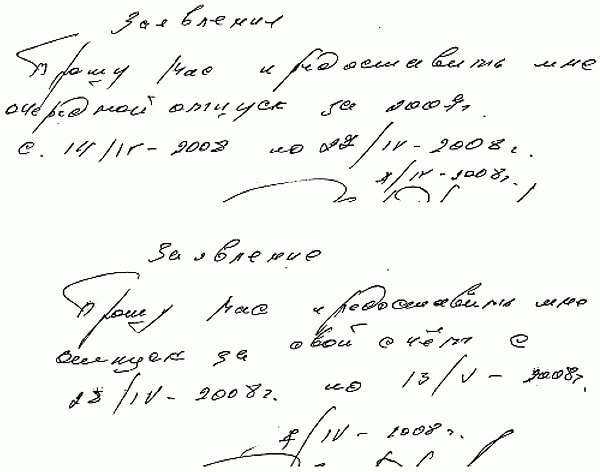 Заявления
Прошу Вас предоставить мне
очередной отпуск за 2007г.
с. 14/IV-2008 по 27/IV-2008г.
/IV-2008г.
Заявление
Прошу Вас предоставить мне
отпуск за свой счёт с
28/IV-2008г. по 13/V-2008г.
/IV-2008г.